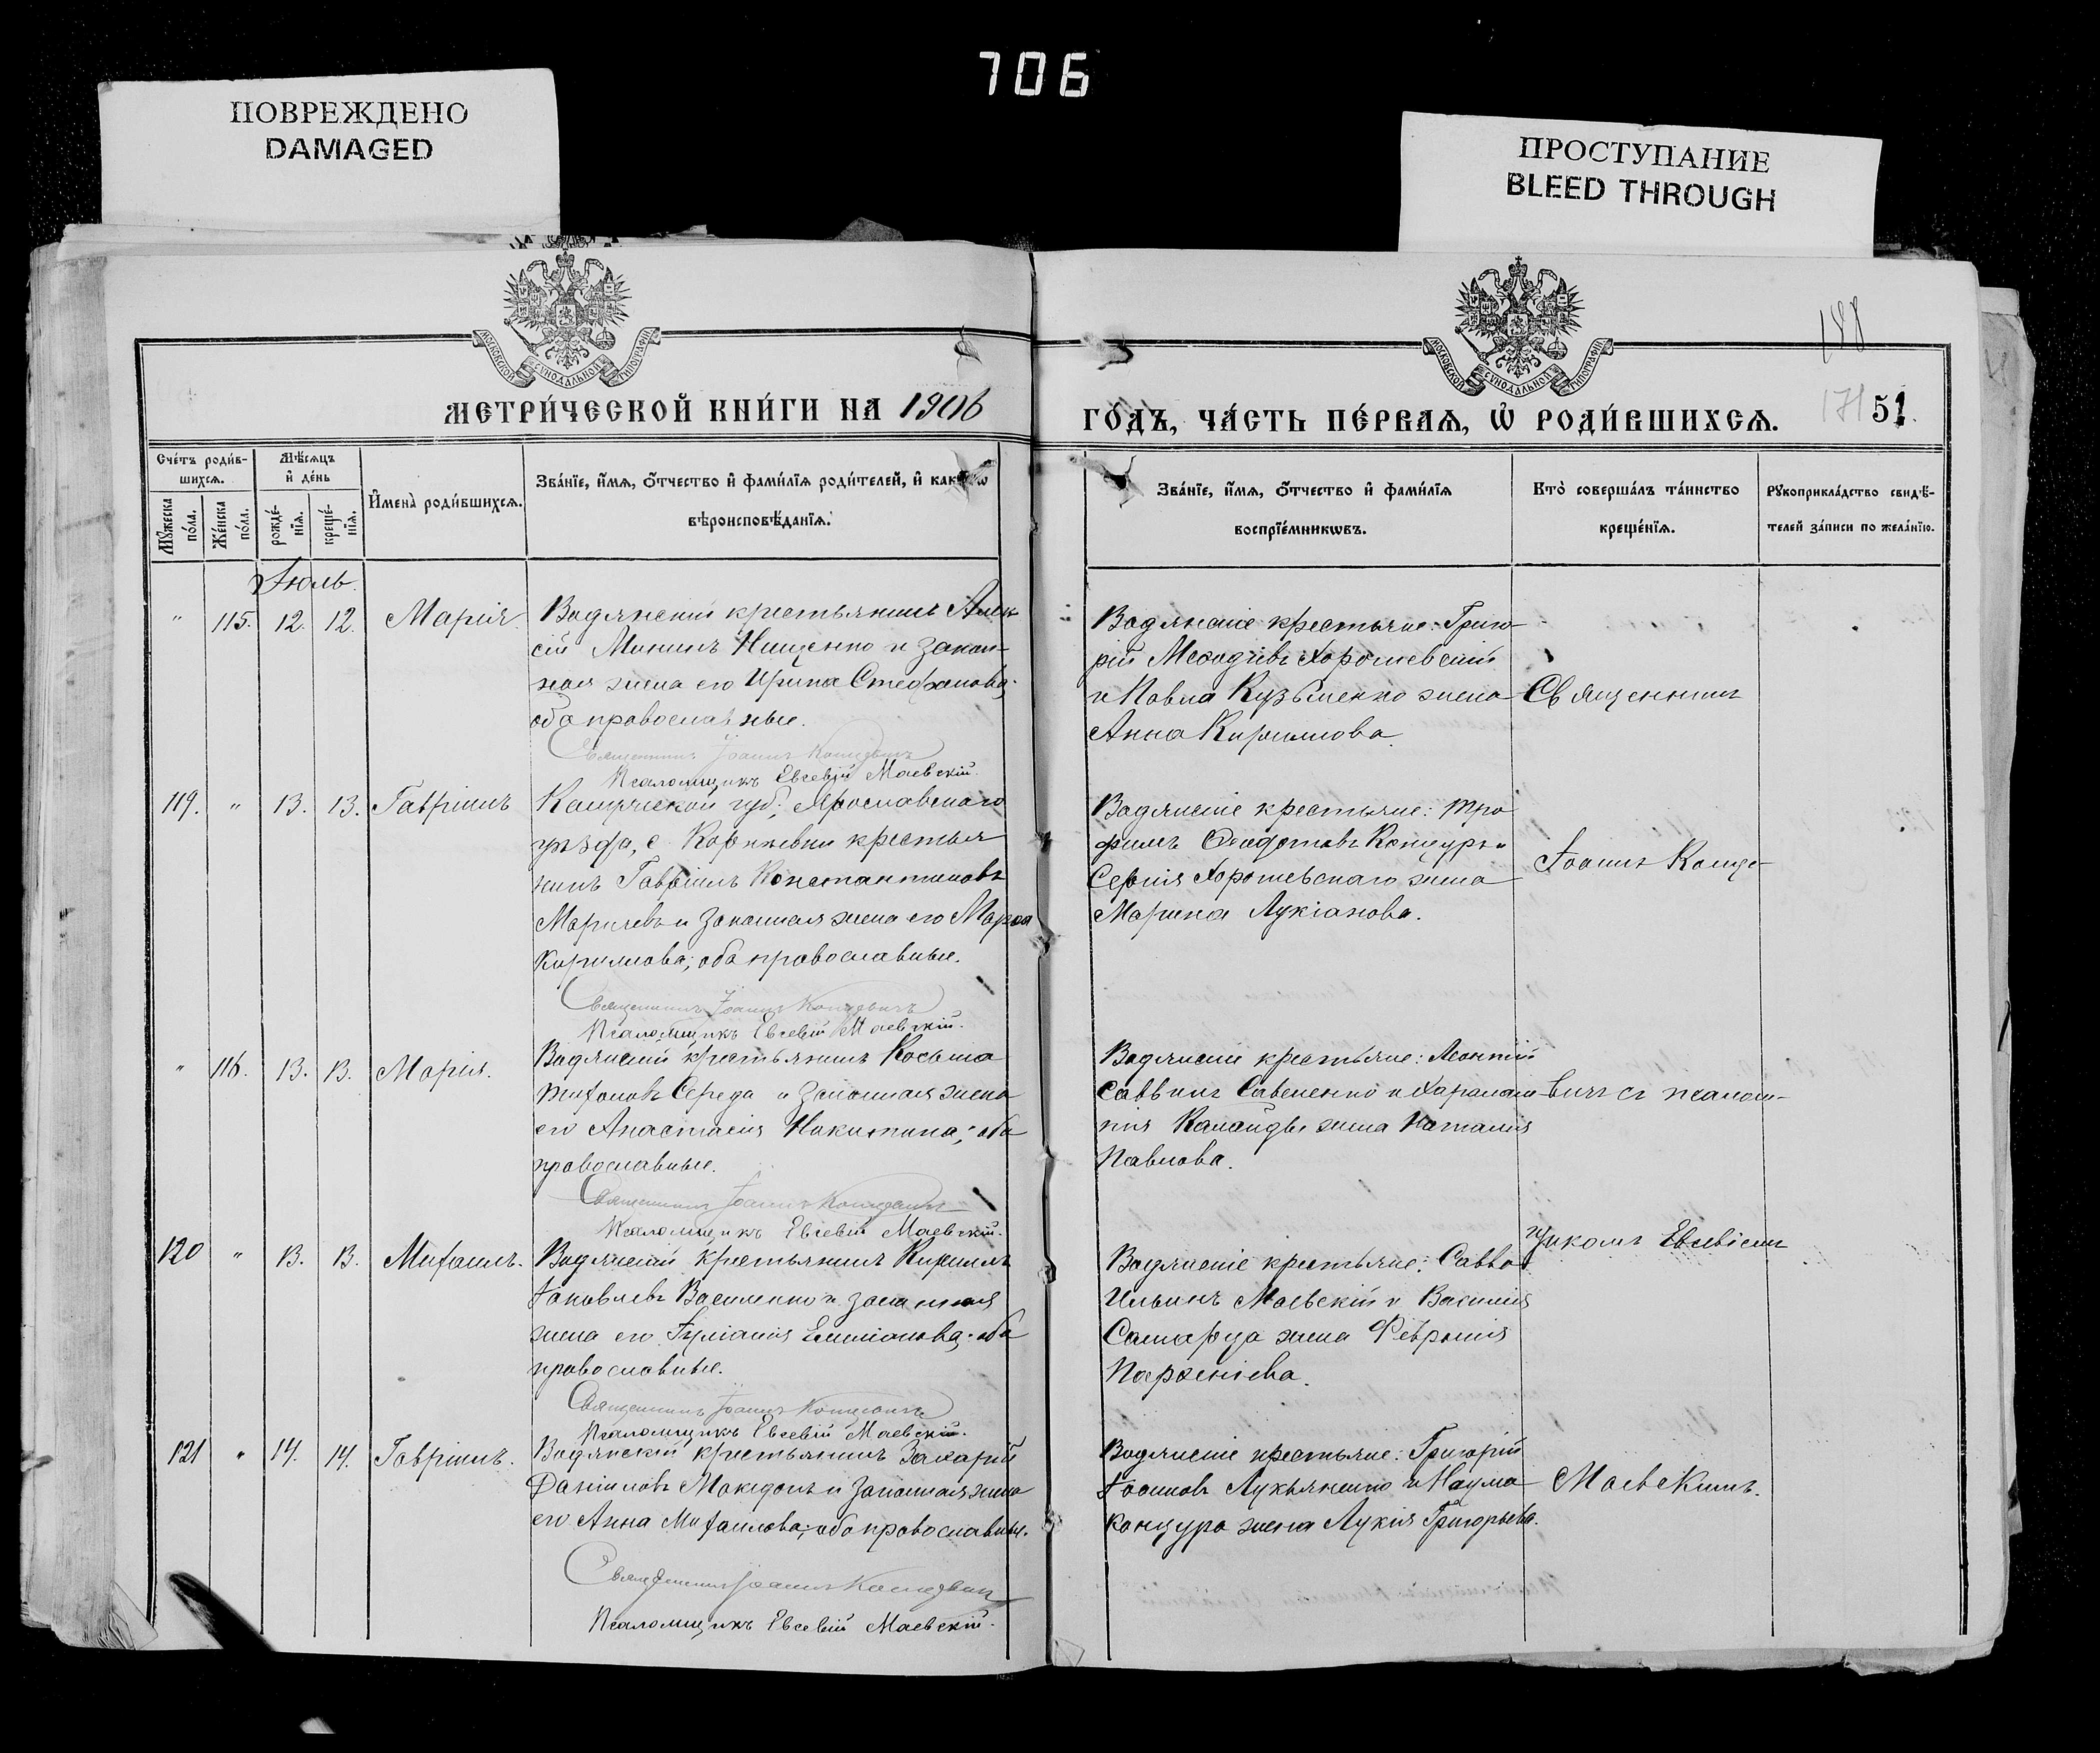 706
ПОВРЕЖДЕНО
DAMAGED
ПРОСТУПАНИЕ
BLEED THROUGH
МОСКОВСКОЙ СѴНОДАЛЬНОЙ ТИПОГРАФІИ
МОСКОВСКОЙ СѴНОДАЛЬНОЙ ТИПОГРАФІИ
188
МЕТРИ́ЧЕСКОЙ КНИ́ГИ НА 1906
ГО́ДЪ, ЧА́СТЬ ПЕ́РВАЯ, Ѡ РОДИ́ВШИХСЯ.
171 51.
Сче́тъ роди́в-
шихся.
Мѣ́сяцъ
и де́нь
Му́жеска
по́ла.
Же́нска
по́ла.
рожде́-
нїя.
креще́-
нїя.
И́мена роди́вшихся.
Зва́нїе, и́мя, о́тчество и фами́лїя роди́телей, и како́гѡ
вѣроисповѣ́данїя.
Зва́нїе, и́мя, о́тчество и фами́лїя
воспрїе́мникѡвъ.
Кто̀ соверша́лъ та́инство
креще́нїя.
Рꙋкоприкла́дство свидѣ́-
телей за́писи по жела́нїю.
Іюль.
" 115. 12. 12. Марія
Водянскій крестьянинъ Алек-
сій Мининъ Нищенко и закон-
ная жена его Ирина Стефанова;
оба православные.
Священникъ Іоаннъ Кощевичъ
Псаломщикъ Евсевій Маевскій.
Водянскіе крестьяне: Григо-
рій Меѳодіевъ Хорошевскій
и Павла Кузьменко жена
Анна Кириллова.
Священникъ
119. " 13. 13. Гавріилъ
губ., Ярославскаго
уѣзда, с. крестья
нинъ Гавріилъ Константиновъ
и законная жена его Марѳа
Кириллова; оба православные.
Священникъ Іоаннъ Кощевичъ
Псаломщикъ Евсевій Маевскій.
Водянскіе крестьяне: Тро
фимъ Ѳеодотовъ Концуръ и
Сергія Хорошевскаго жена
Марина Лукіанова.
Іоаннъ Коще-
" 116. 13. 13. Марія.
Водянскій крестьянинъ Косьма
Тихоновъ Середа и законная жена
его Анастасія Никитина; оба
православные.
Священникъ Іоаннъ Кощевичъ
Псаломщикъ Евсевій Маевскій.
Водянскіе крестьяне: Леонтій
Саввинъ Савененко и Харлам
пія жена Наталія
Павлова.
вичъ съ псалом-
120 " 13. 13. Михаилъ.
Водянскій крестьянинъ Кириллъ
Іаковлевъ Василенко и законная
жена его Іуліанія Емиліанова; оба
православные.
Священникъ Іоаннъ Кощевичъ
Псаломщикъ Евсевій Маевскій.
Водянскіе крестьяне: Савва
Ильинъ Маевскій и Василія
Самарца жена Феѵронія
Парѳеніева.
щикомъ Евсевіемъ
121 " 14. 14. Гавріилъ.
Водянскій крестьянинъ Захарій
Даніиловъ Македонъ и законная жена
его Анна Михаилова; оба православные.
Священникъ Іоаннъ Кощевичъ
Псаломщикъ Евсевій Маевскій.
Водянскіе крестьяне: Григорій
Іоанновъ Лукьяненко и Наума
Концура жена Лукія Григорьева.
Маевскимъ.